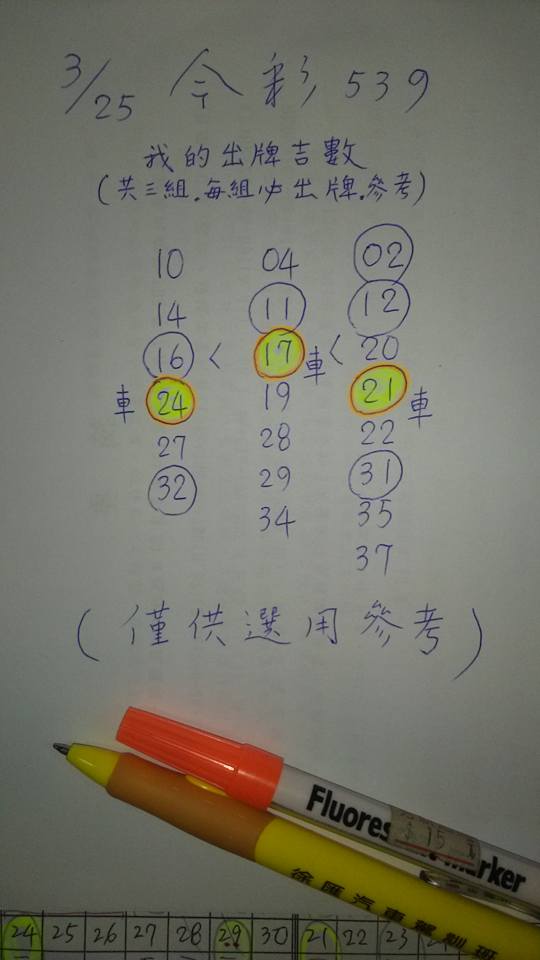 3/25 今彩539
我的出牌吉數
(共三組.每組必出牌.參考)
10 04 02
14 11 12
16 < 17 車 < 20
車 24 19 21 車
27 28 22
32 29 31
34 35
37
(僅供選用參考)
Fluores Marker
$15
徐匯汽車駕訓班
24 25 26 27 28 29 30 21 22 23